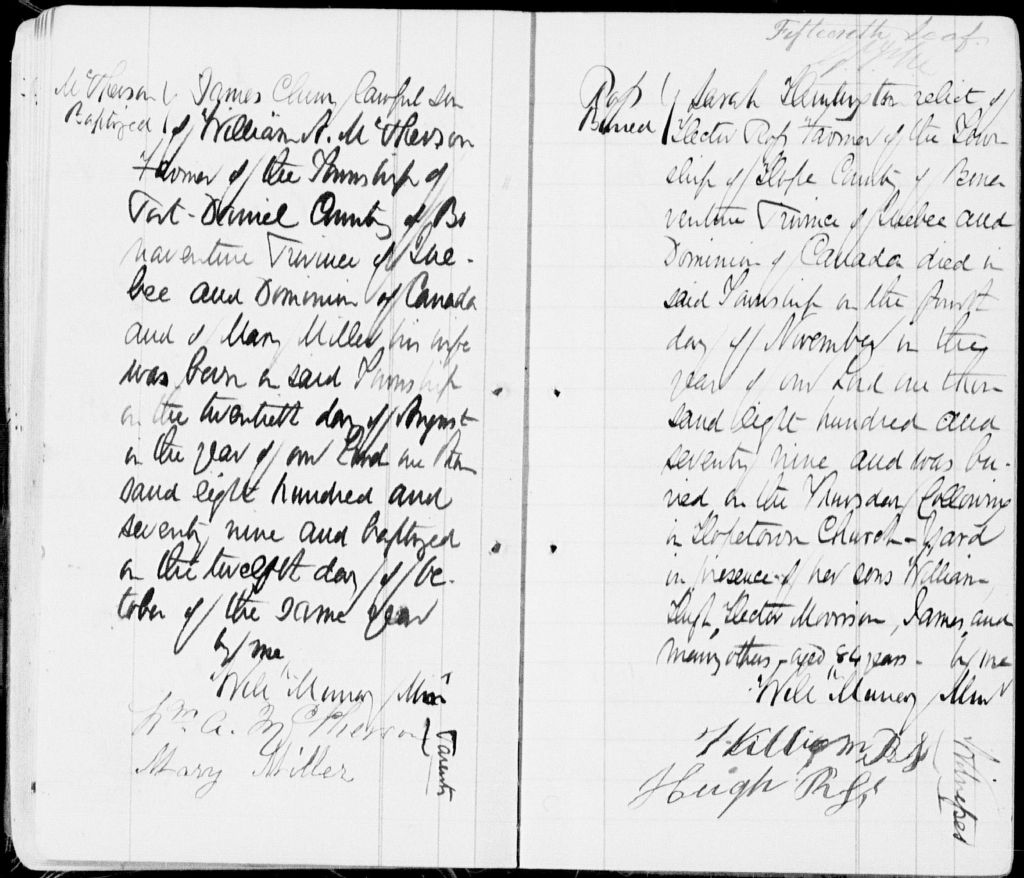 McPherson
Baptized
James Cluny lawful son
of William A. McPherson
Farmer of the Township of
Port-Daniel County of Bo
naventure Province of Que-
bec and Dominion of Canada
and of Mary Miller his wife
was born in said Township
on the twentieth day of August
in the year of our Lord one thou
sand eight hundred and
seventy nine and baptized
on the twelfth day of Oc-
tober of the same year
by me
Will Murray Minr
Wm. A. McPherson
Mary Miller
Parents
Fifteenth leaf.
Ross
Buried
Sarah Huntington relict of
Hector Ross Farmer of the Town
ship of Hope County of Bona
venture Province of Quebec and
Dominion of Canada died in
said Township on the fourth
day of November in the
year of our Lord one thou
sand eight hundred and
seventy nine and was bu-
ried on the Thursday following
in Hopetown Church-yard
in presence of her sons William,
Hugh, Hector Morrison, James, and
many others, aged 84 years. by me
Will Murray Minr
William Ross
Hugh Ross
Witnesses